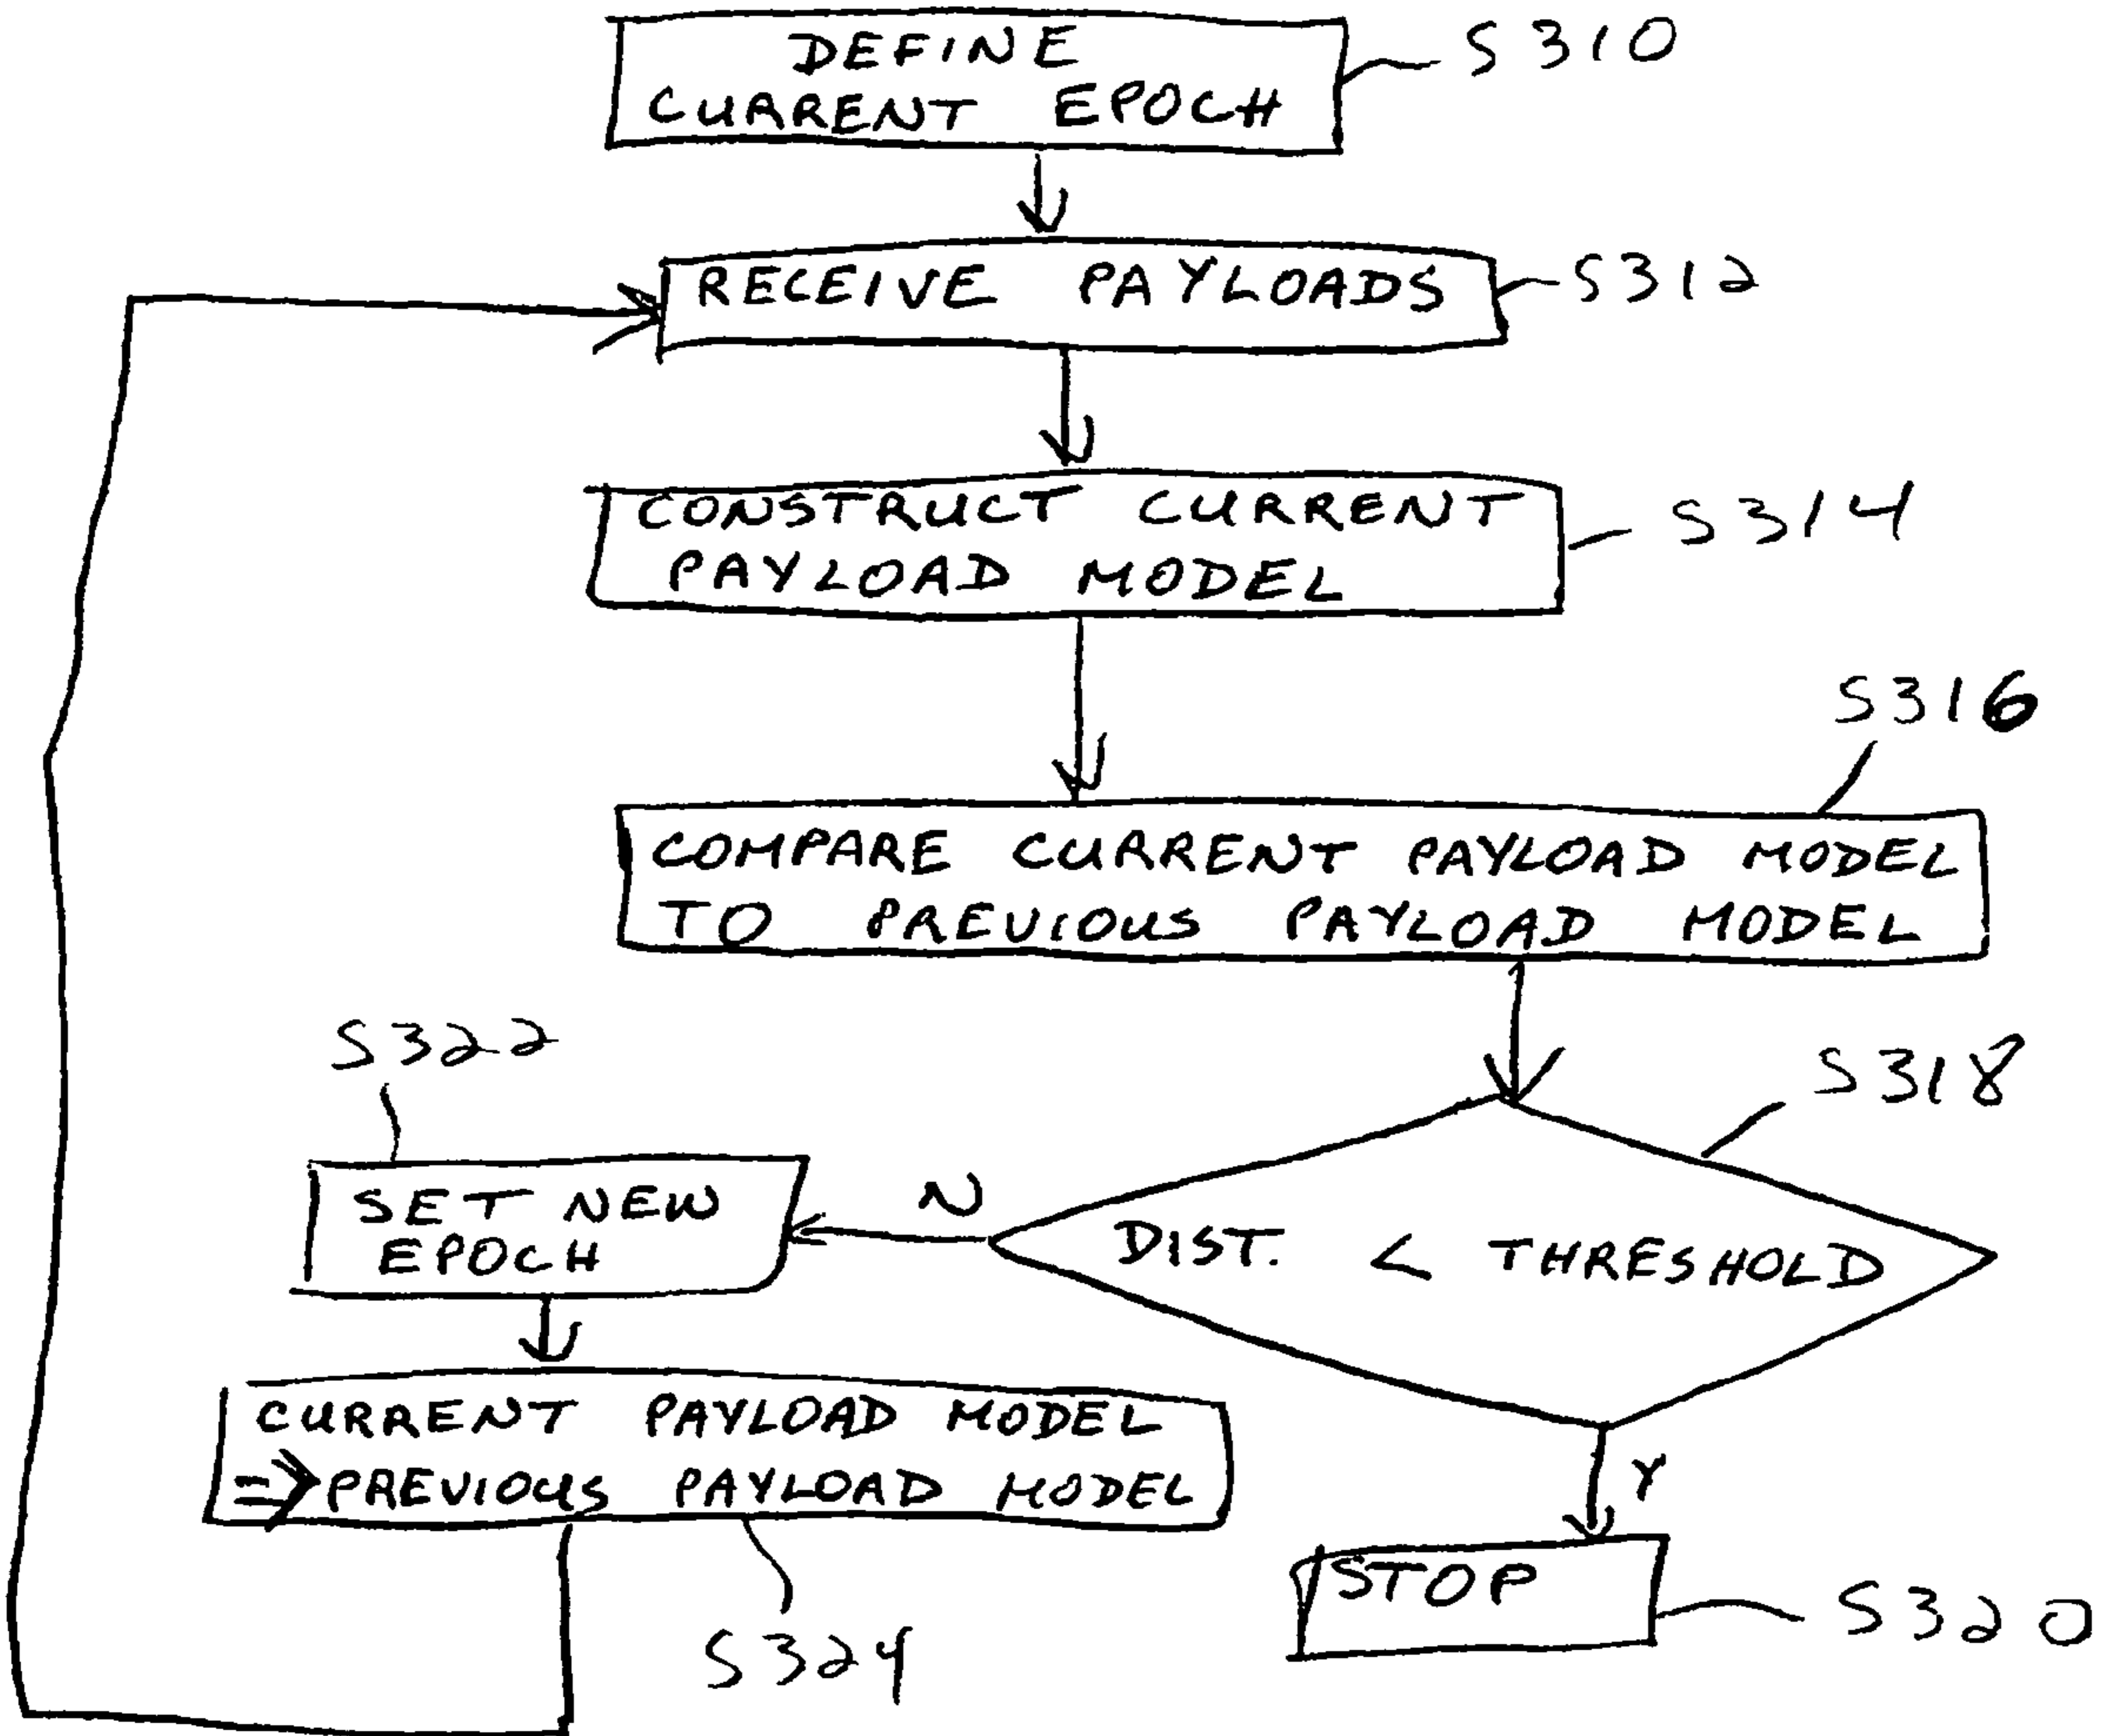 DEFINE
CURRENT EPOCH
S310
RECEIVE PAYLOADS
S312
CONSTRUCT CURRENT
PAYLOAD MODEL
S314
S316
COMPARE CURRENT PAYLOAD MODEL
TO PREVIOUS PAYLOAD MODEL
S322
S318
SET NEW
EPOCH
N
DIST. < THRESHOLD
CURRENT PAYLOAD MODEL
=> PREVIOUS PAYLOAD MODEL
Y
STOP
S320
S324